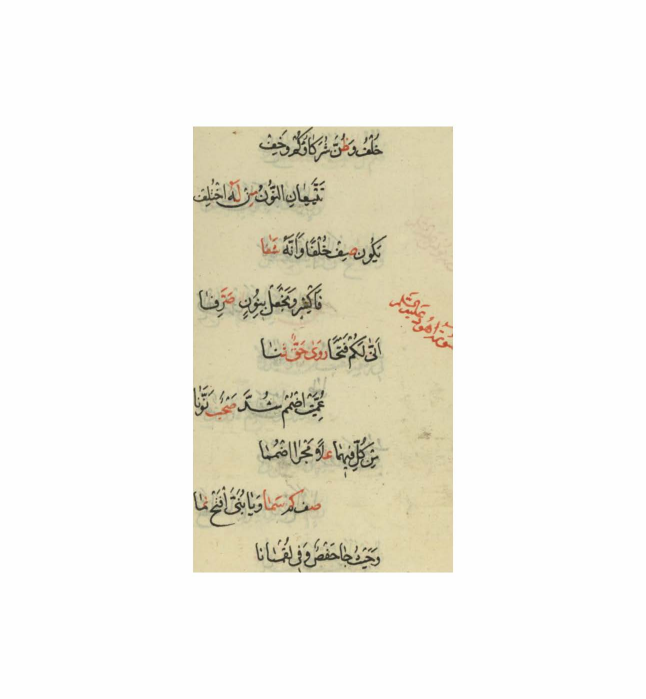 خُلْف وَظُنَّ شُرَكَاؤُكُمْ وَخِفّ
تَتَّبِعَانِ النُّونُ مِنْ لَهُ اخْتُلِف
يَكُون صِف خُلْفًا وَأَنَّهُ شَفَا
فَاكْسِر وَيَجْعَلُ بِنُونٍ صُرِّفَا
سورة هود عليه السلام
اَنّى لَكُمْ فَتْحًا رَوَى حَقٌّ ثَنَا
عُمِّيَت اضْمُمْ شُدَّ صَحْبٌ نَوِّنَا
مِنْ كُلِّ فِيهِمَا عَلَا وَمَجْرا اضْمُمَا
صف كم سَمَا وَيَا بُنَىَّ افْتَحْ نَمَا
وَحَيْثُ جَا حَفْصٌ وَفِى لُقْمَانَا